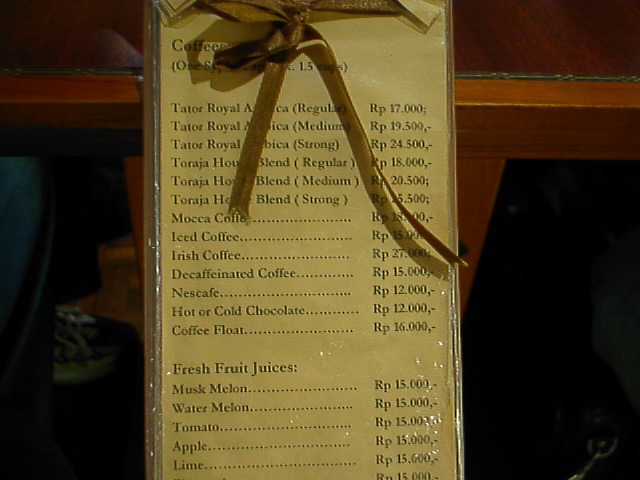 Coffees
(One 1.5 cups)
Tator Royal Arabica (Regular) Rp 17.000;
Tator Royal Arabica (Medium) Rp 19.500,-
Tator Royal Arabica (Strong) Rp 24.500,-
Toraja House Blend ( Regular ) Rp 18.000,-
Toraja House Blend ( Medium ) Rp 20.500;
Toraja House Blend ( Strong ) Rp
Mocca Coffee........................ Rp
Iced Coffee........................... Rp 15.000,-
Irish Coffee.......................... Rp 27.000;
Decaffeinated Coffee............ Rp 15.000,-
Nescafe............................... Rp 12.000,-
Hot or Cold Chocolate........... Rp 12.000,-
Coffee Float......................... Rp 16.000,-
Fresh Fruit Juices:
Musk Melon......................... Rp 15.000,-
Water Melon........................ Rp 15.000,-
Tomato............................... Rp 15.000,-
Apple.................................. Rp 15.000,-
Lime................................... Rp 15.000,-
Rp 15.000